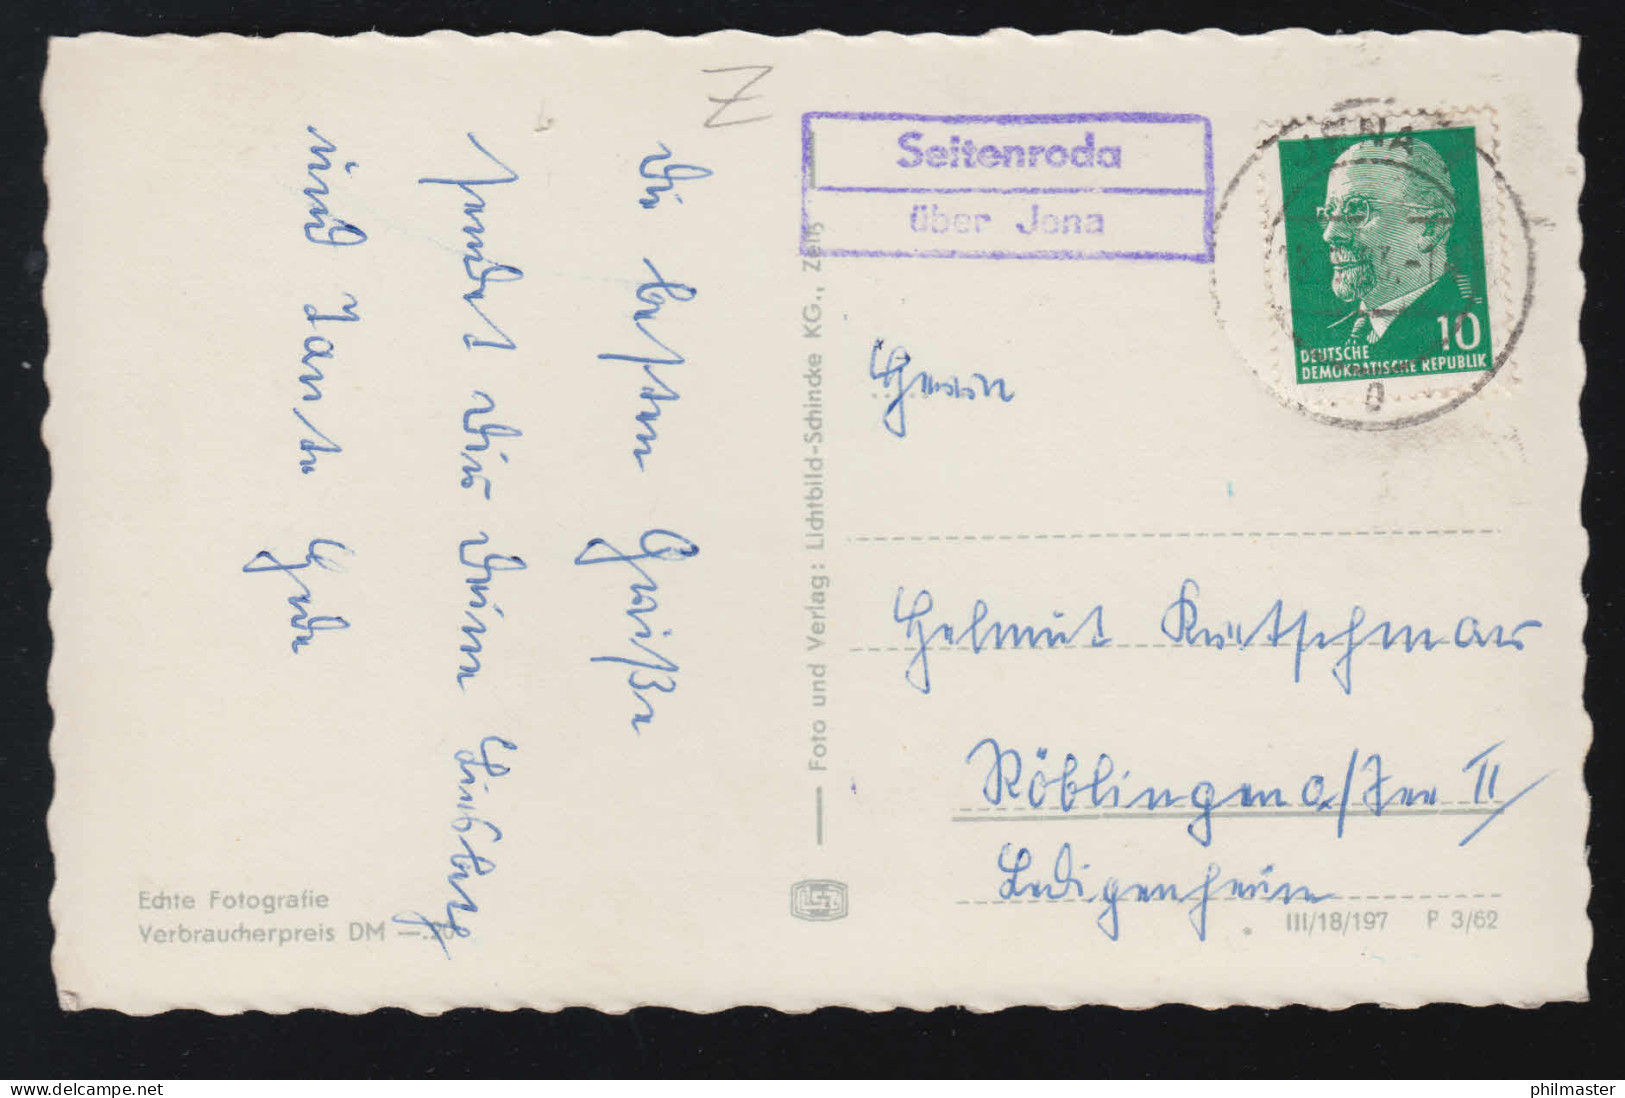 Z
Die besten Grüße
sendet Dir Deine
und Tante
Echte Fotografie
Verbraucherpreis DM —.20
Foto und Verlag: Lichtbild-Schincke KG., Zeitz
Seitenroda
über Jena
JENA
10
DEUTSCHE
DEMOKRATISCHE REPUBLIK
Herrn
Helmut Kretschmar
Röblingen a/See II
Ledigenheim
III/18/197 P 3/62
philmaster